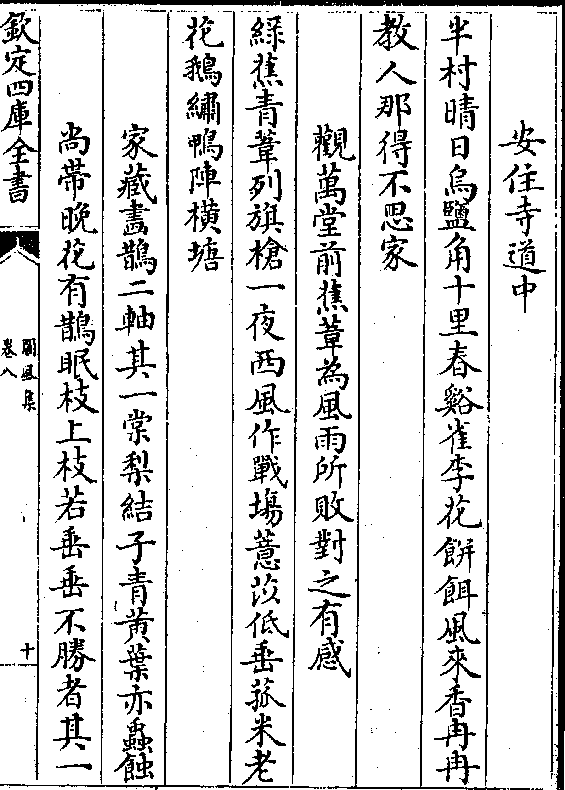 安住寺道中
半村晴日烏鹽角十里春谿雀李花餅餌風來香冉冉
教人那得不思家
觀萬堂前蕉葦為風雨所敗對之有感
綠蕉青葦列旗槍一夜西風作戰塲薏苡低垂菰米老
花鵝繡鴨陣橫塘
家藏畫鵲二軸其一棠梨結子青黃葉亦蟲蝕
尚帶晚花有鵲眠枝上枝若垂垂不勝者其一
欽定四庫全書
閬風集
卷八
十